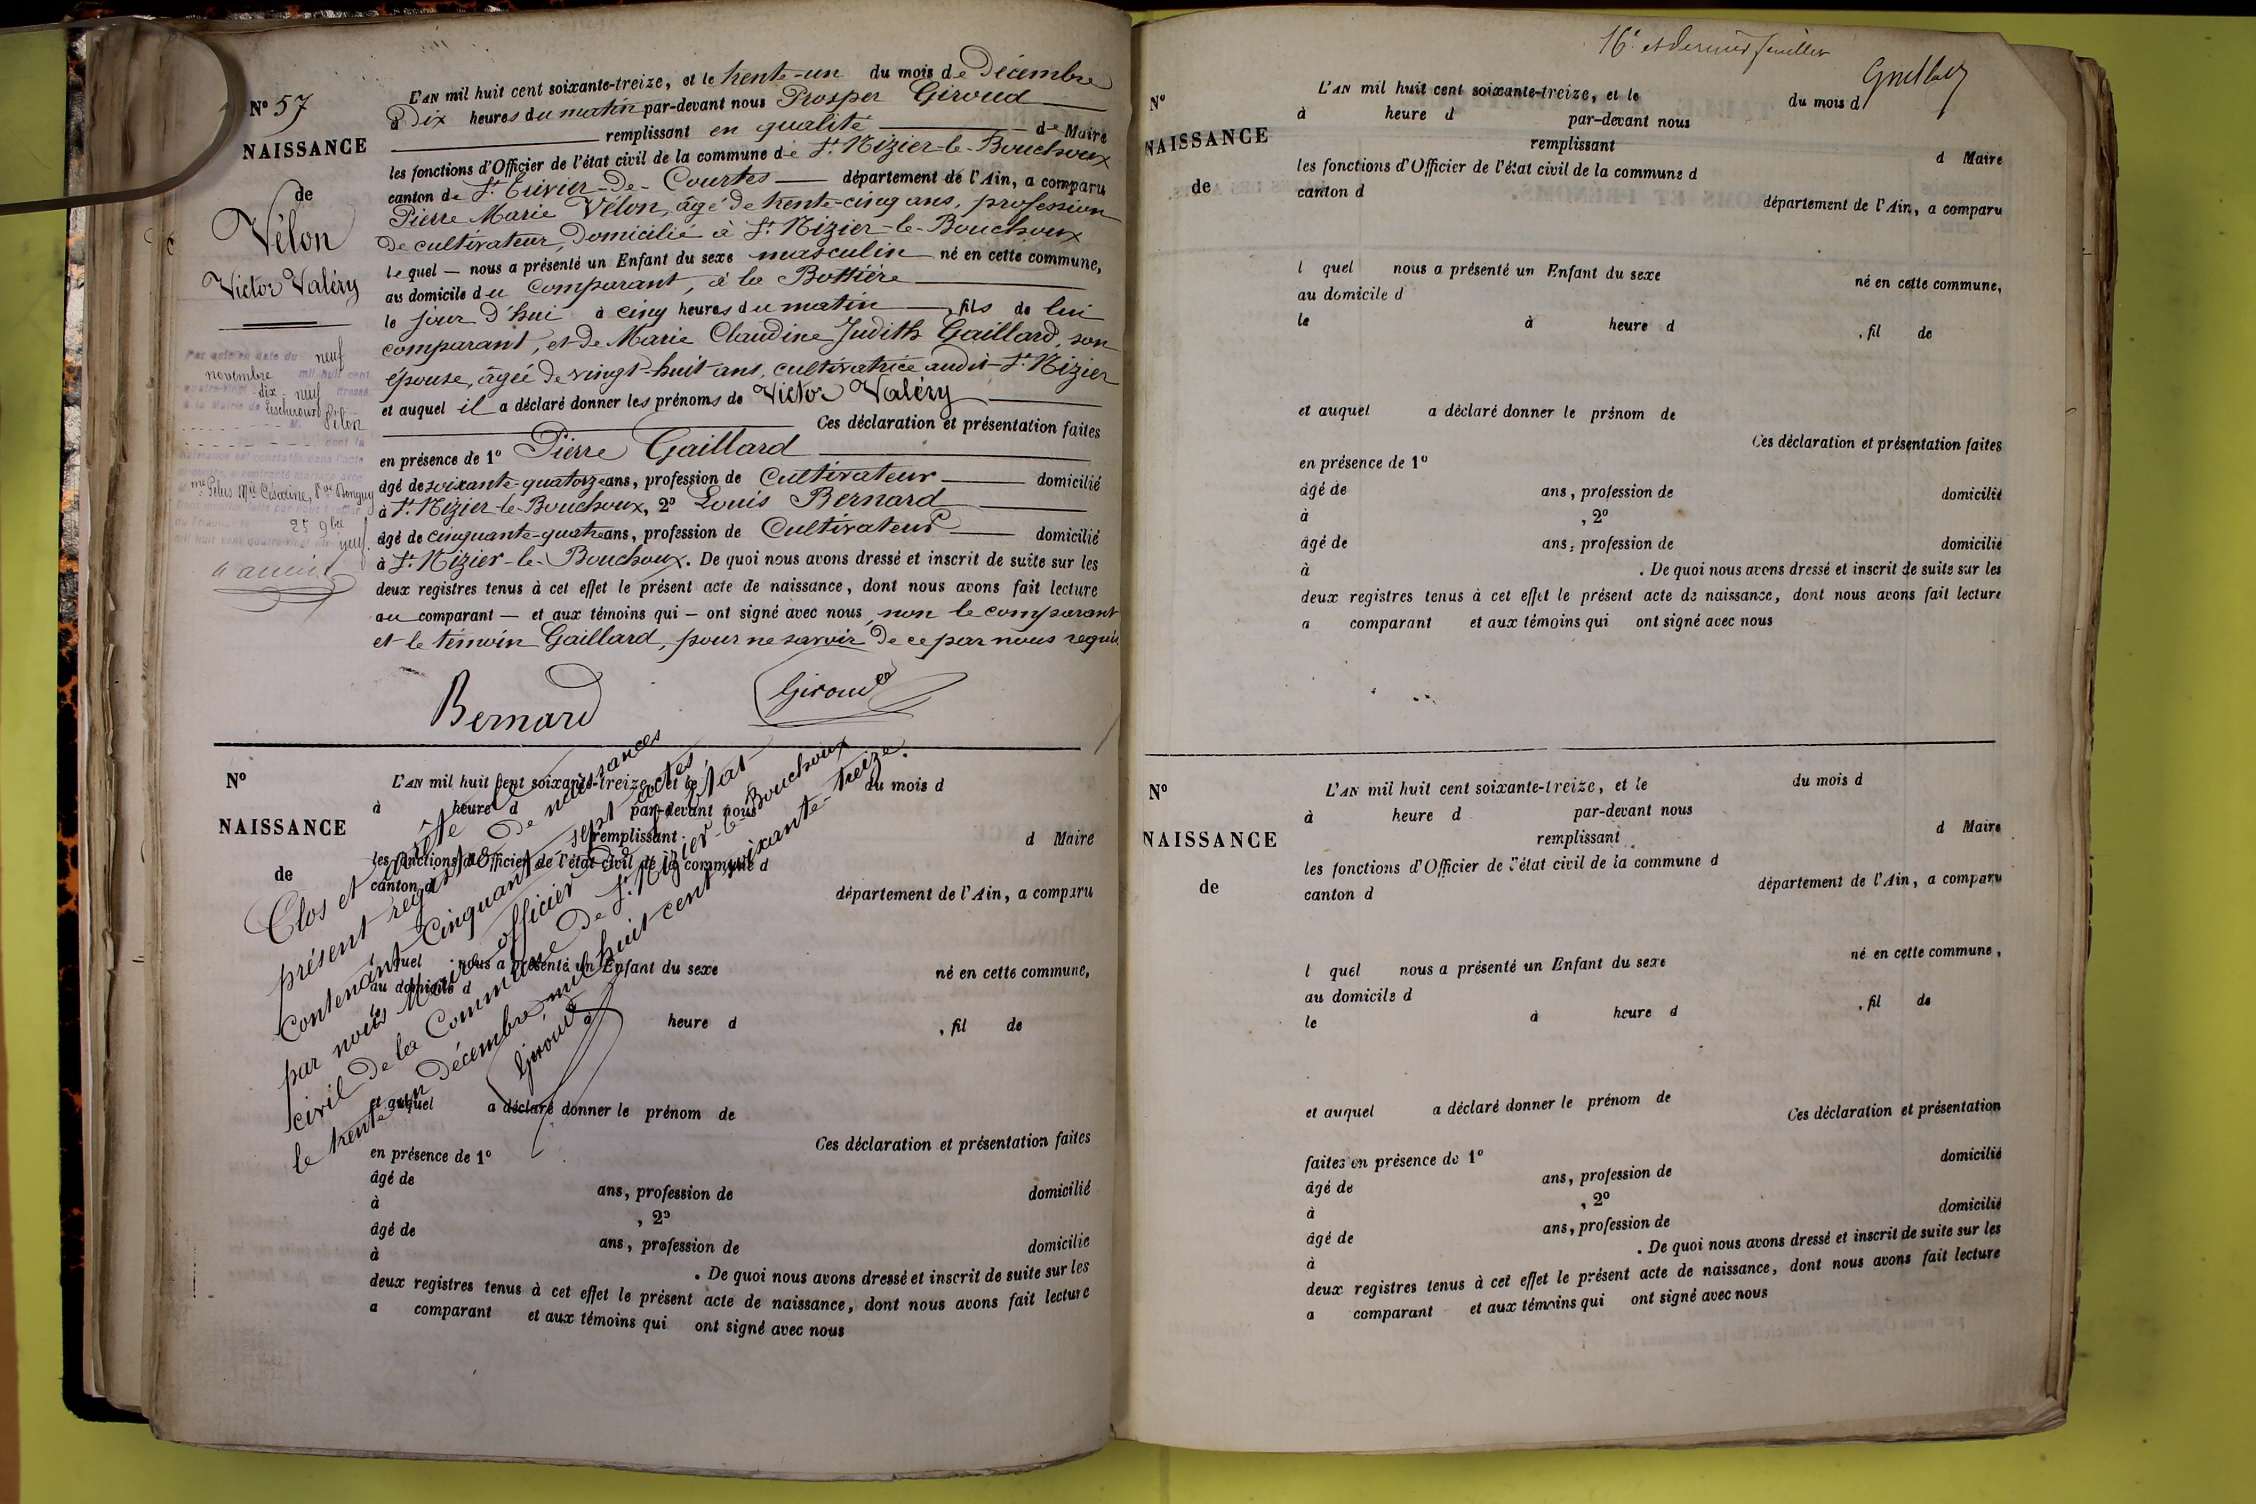 N° 57
NAISSANCE
de
Vélon
Victor Valéry
L'AN mil huit cent soixante-treize, et le trente-un du mois de Décembre
à Dix heures du matin par-devant nous Prosper Giroud
remplissant en qualité de Maire
les fonctions d'Officier de l'état civil de la commune de St. Nizier-le-Bouchoux
canton de St. Trivier-De-Courtes département de l'Ain, a comparu
Pierre Marie Vélon, âgé de trente-cinq ans, profession
De cultivateur, Domicilié à St. Nizier-le-Bouchoux
lequel — nous a présenté un Enfant du sexe masculin né en cette commune,
au domicile du comparant, à la Bottière
le jour d'hui à cinq heures du matin, fils de lui
comparant, et de Marie Claudine Judith Gaillard, son
épouse, âgée de vingt-huit ans, cultivatrice audit St. Nizier
et auquel il a déclaré donner les prénoms de Victor Valéry
Ces déclaration et présentation faites
en présence de 1° Pierre Gaillard
âgé de soixante-quatorze ans, profession de Cultivateur domicilié
à St. Nizier-le-Bouchoux, 2° Louis Bernard
âgé de cinquante-quatre ans, profession de Cultivateur domicilié
à St. Nizier-le-Bouchoux. De quoi nous avons dressé et inscrit de suite sur les
deux registres tenus à cet effet le présent acte de naissance, dont nous avons fait lecture
au comparant — et aux témoins qui — ont signé avec nous, non le comparant
et le témoin Gaillard, pour ne savoir De ce par nous requis
Bernard
Giroud
Par acte en date du neuf
novembre mil huit cent
dix neuf
à la Mairie de Lescheroux
Vélon
dont la
25 9bre
neuf.
N°
NAISSANCE
de
L'AN mil huit cent soixante-treize, et le du mois d
à heure d par-devant nous
remplissant
d Maire
les fonctions d'Officier de l'état civil de la commune d
canton d
département de l'Ain, a comparu
l quel nous a présenté un Enfant du sexe né en cette commune,
au domicile d
le à heure d , fil de
et auquel a déclaré donner le prénom de
Ces déclaration et présentation faites
en présence de 1°
âgé de ans, profession de domicilié
à , 2°
âgé de ans, profession de domicilié
à . De quoi nous avons dressé et inscrit de suite sur les
deux registres tenus à cet effet le présent acte de naissance, dont nous avons fait lecture
a comparant et aux témoins qui ont signé avec nous
Clos et arrêté le
présent registre De naissances
contenant cinquante-sept actes,
par nous Maire officier De l'état
civil De la Commune De St. Nizier-le-Bouchoux
le trente-un Décembre mil huit cent soixante-treize.
Giroud
16e et dernier feuillet
N°
NAISSANCE
de
L'AN mil huit cent soixante-treize, et le du mois d
à heure d par-devant nous
remplissant
d Maire
les fonctions d'Officier de l'état civil de la commune d
canton d
département de l'Ain, a comparu
l quel nous a présenté un Enfant du sexe né en cette commune,
au domicile d
le à heure d , fil de
et auquel a déclaré donner le prénom de
Ces déclaration et présentation faites
en présence de 1°
âgé de ans, profession de domicilié
à , 2°
âgé de ans, profession de domicilié
à . De quoi nous avons dressé et inscrit de suite sur les
deux registres tenus à cet effet le présent acte de naissance, dont nous avons fait lecture
a comparant et aux témoins qui ont signé avec nous
N°
NAISSANCE
de
L'AN mil huit cent soixante-treize, et le du mois d
à heure d par-devant nous
remplissant
d Maire
les fonctions d'Officier de l'état civil de la commune d
canton d
département de l'Ain, a comparu
l quel nous a présenté un Enfant du sexe né en cette commune,
au domicile d
le à heure d , fil de
et auquel a déclaré donner le prénom de
Ces déclaration et présentation
faites en présence de 1°
âgé de ans, profession de domicilié
à , 2°
âgé de ans, profession de domicilié
à . De quoi nous avons dressé et inscrit de suite sur les
deux registres tenus à cet effet le présent acte de naissance, dont nous avons fait lecture
a comparant et aux témoins qui ont signé avec nous